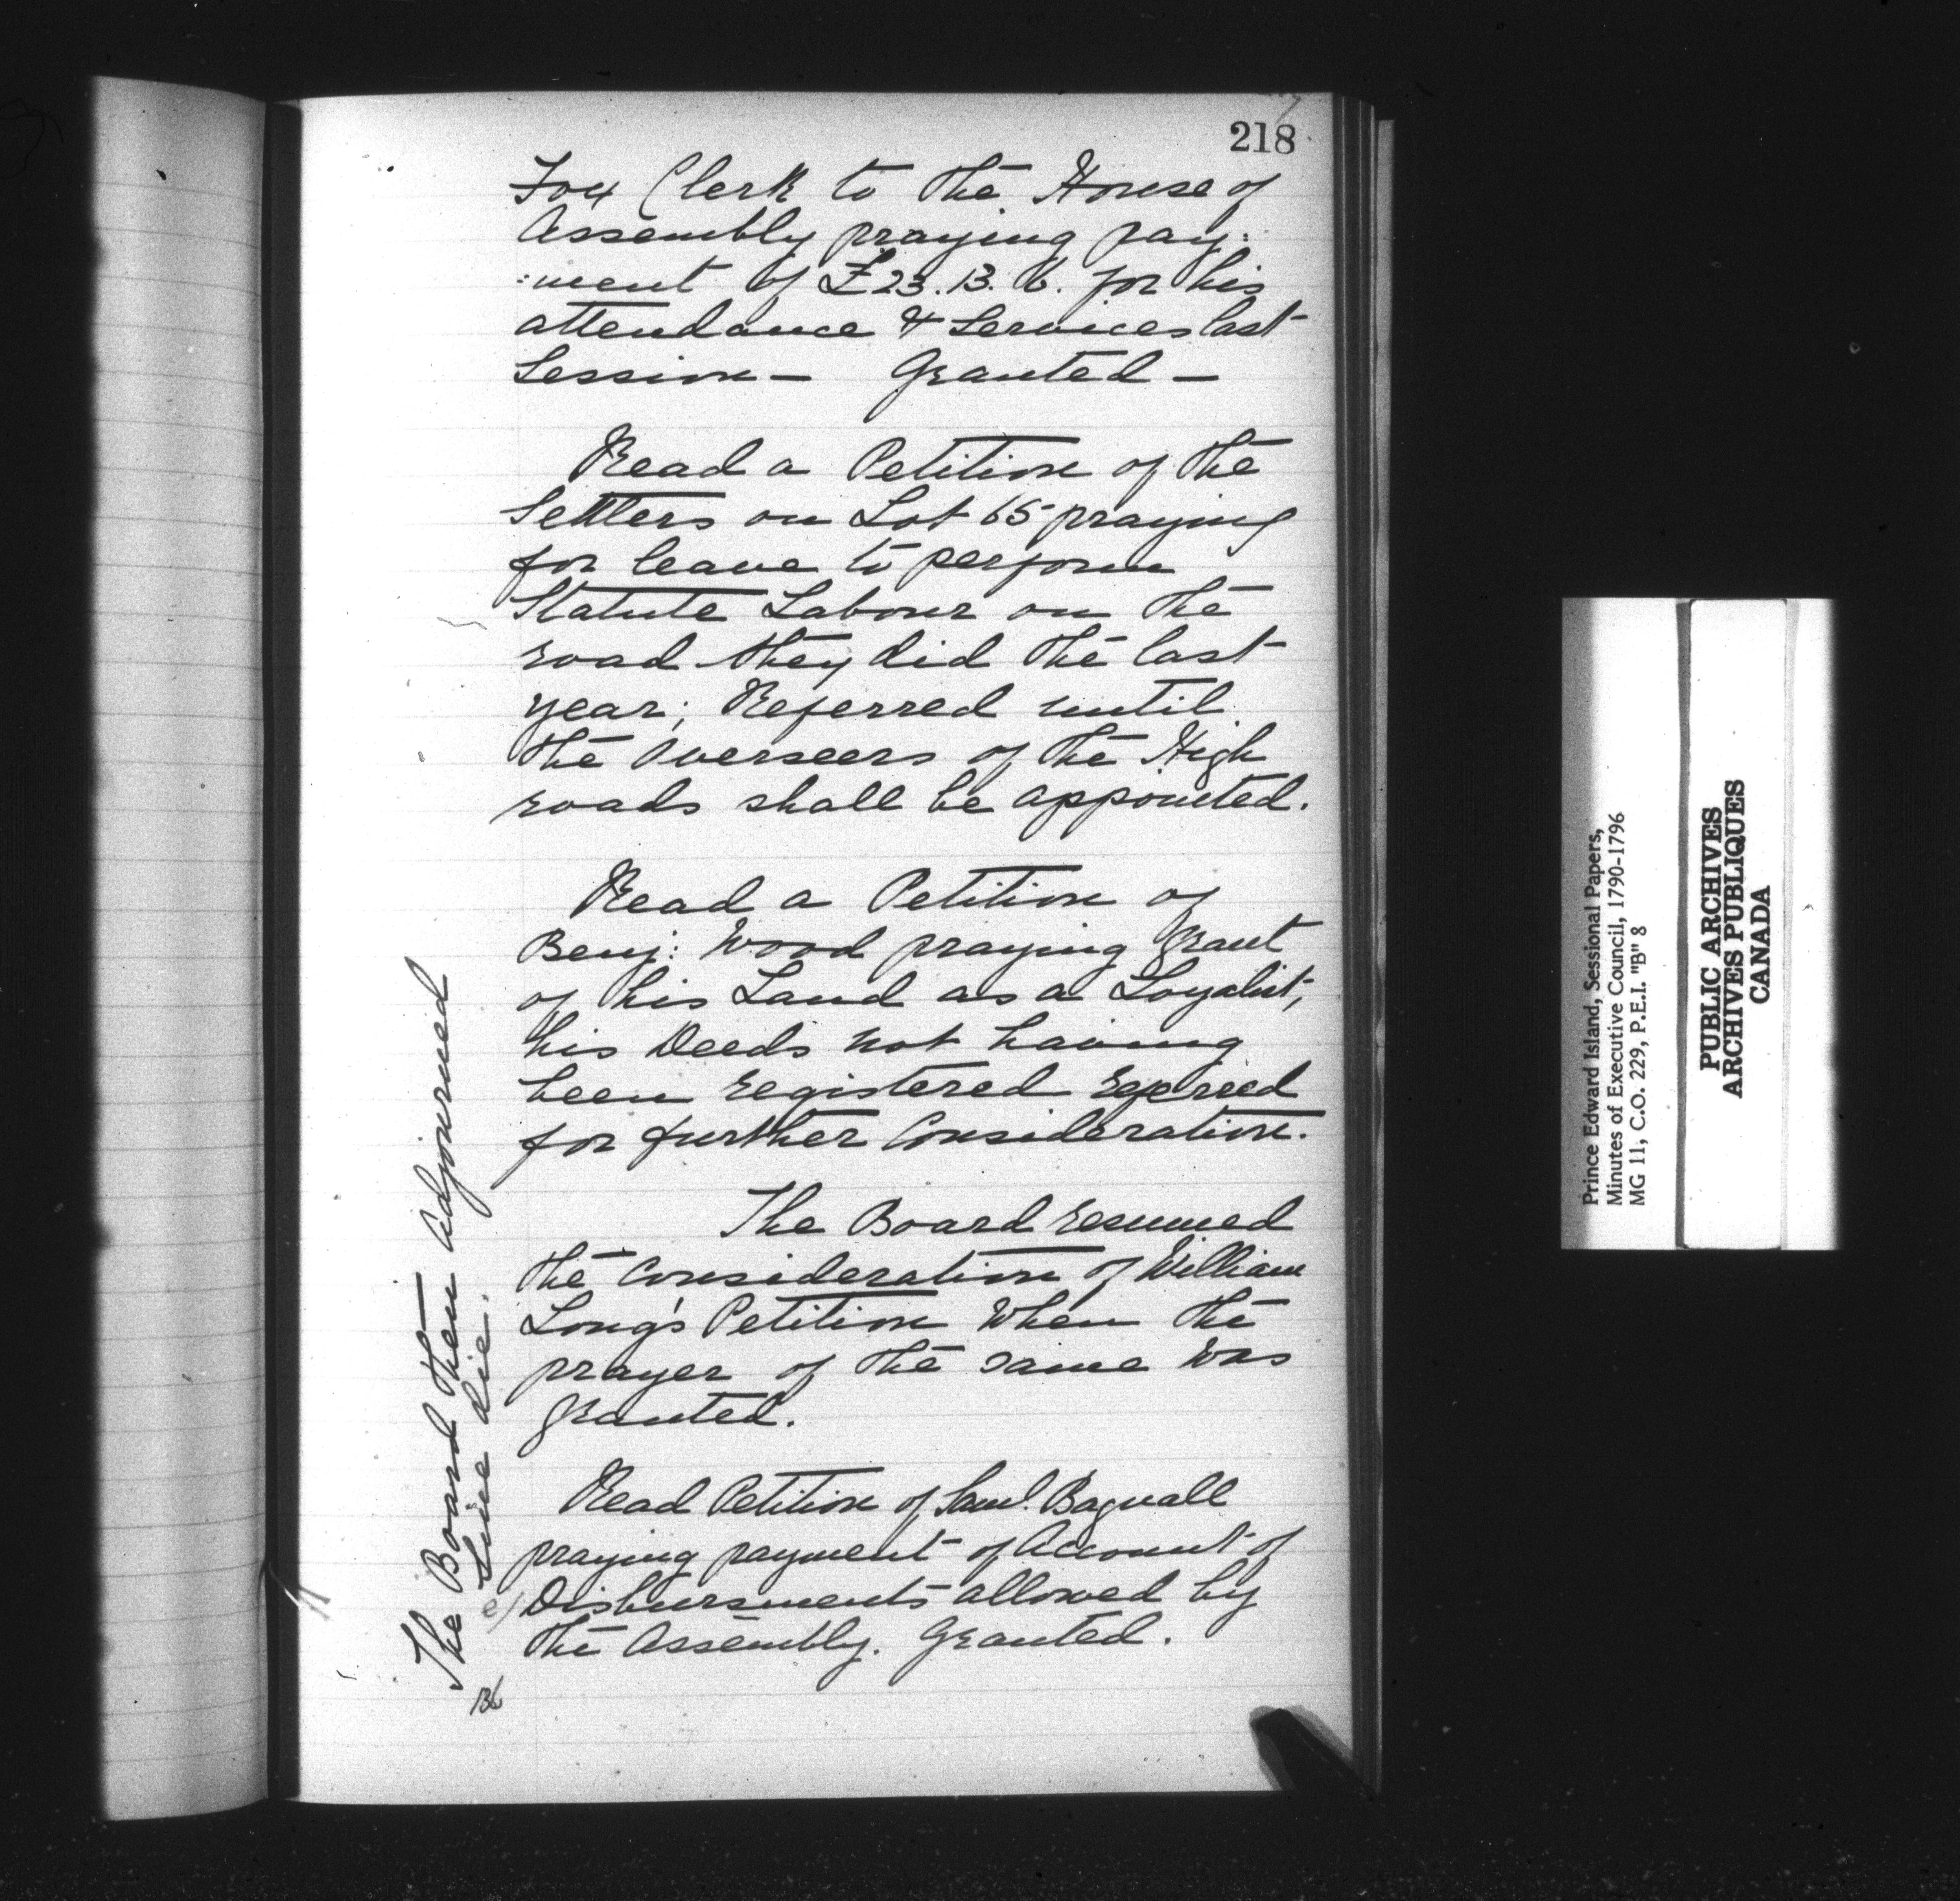 218
Fox Clerk to the House of
Assembly praying pay:
:ment of £23. 13. 6. for his
attendance & Services last
Session — Granted —
Read a Petition of the
Settlers on Lot 65 praying
for leave to perform
Statute Labour on the
road they did the last
year; Referred until
the Overseers of the High
roads shall be appointed.
Read a Petition of
Benj: Wood praying Grant
of his Land as a Loyalist,
his Deeds not having
been registered referred
for further Consideration.
The Board resumed
the Consideration of William
Long's Petition When the
prayer of the same was
granted.
Read Petition of Saml. Bagnall
praying payment of Account of
Disbursements allowed by
the Assembly. Granted.
The Board then Adjourned
Sine die.
Prince Edward Island, Sessional Papers,
Minutes of Executive Council, 1790-1796
MG 11, C.O. 229, P.E.I. "B" 8
PUBLIC ARCHIVES
ARCHIVES PUBLIQUES
CANADA